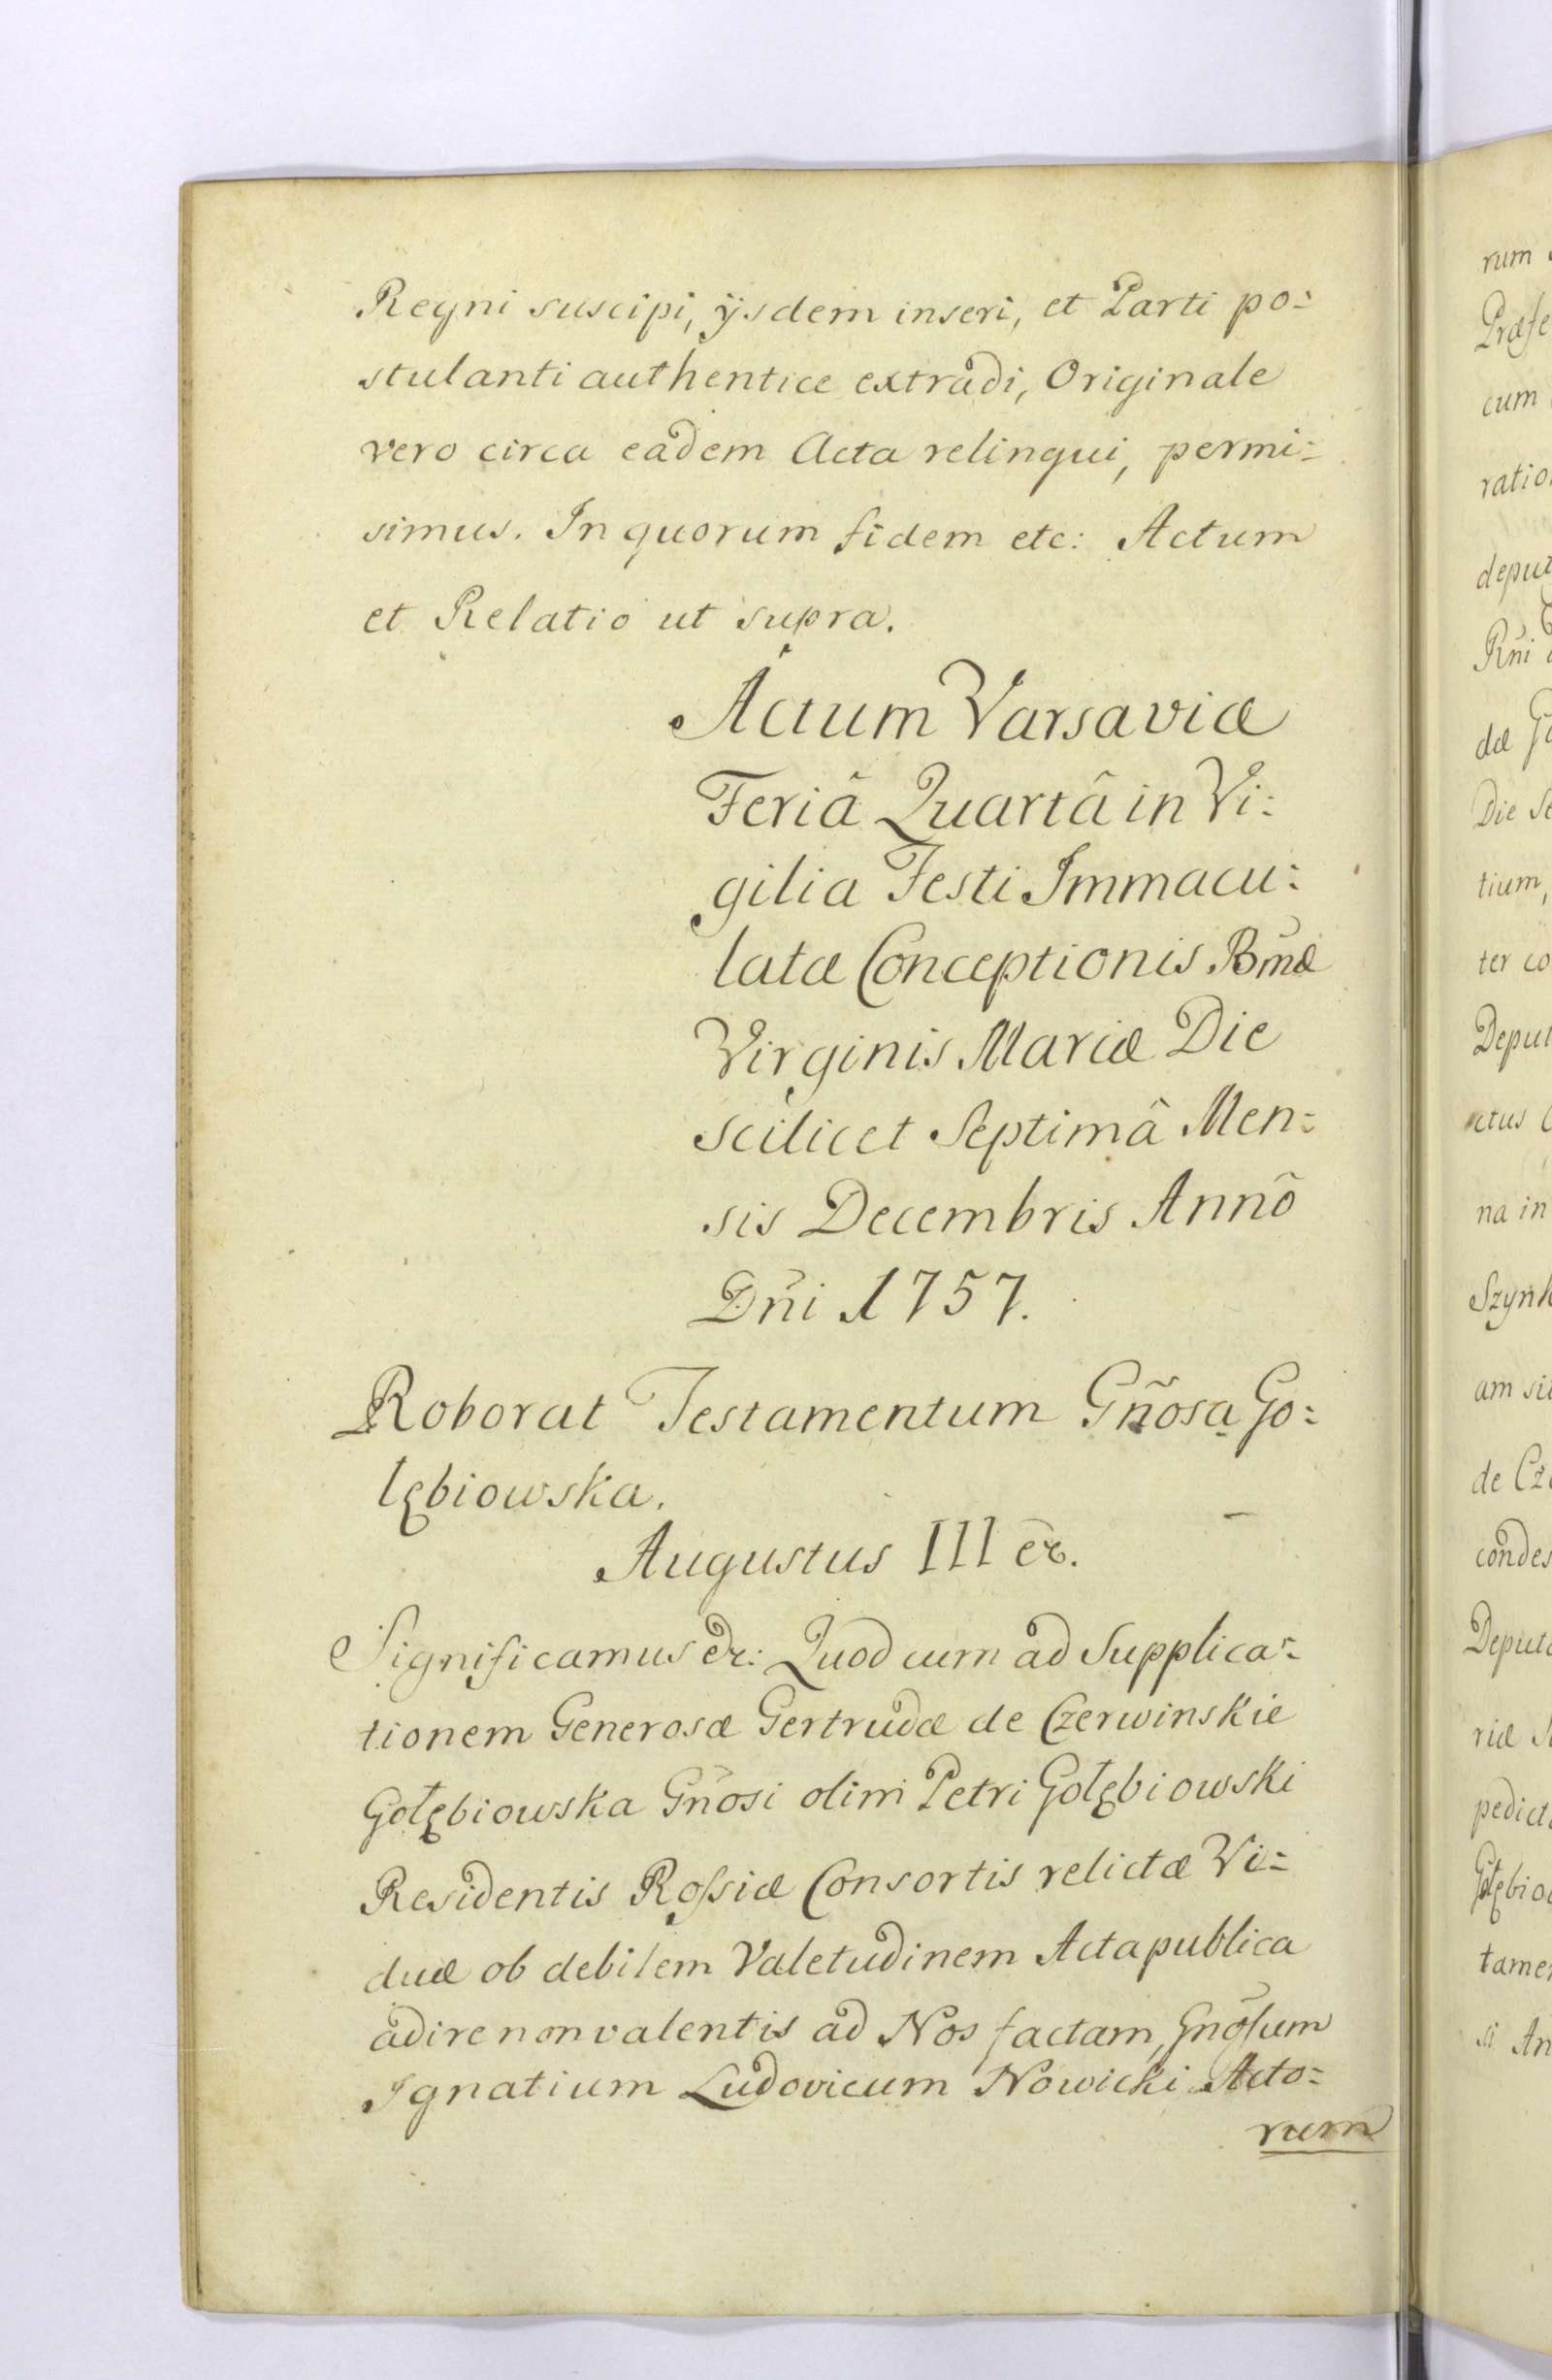 Regni suscipi, ÿsdem inseri, et Parti po=
stulanti authentice extradi, Originale
vero circa eadem Acta relinqui, permi=
simus. In quorum fidem etc: Actum
et Relatio ut supra.
Actum Varsaviæ
Feriâ Quartâ in Vi=
gilia Festi Immacu=
latæ Conceptionis Bm̃æ
Virginis Mariæ Die
scilicet Septimâ Men=
sis Decembris Annô
Dñi 1757.
Roborat Testamentum Gñosa Go=
lębiowska.
Augustus III &c.
Significamus &c: Quod cum ad Supplica=
tionem Generosæ Gertrudæ de Czerwinskie
Gołębiowska Gñosi olim Petri Gołębiowski
Residentis Roſsiæ Consortis relictæ Vi=
duæ ob debilem Valetudinem Acta publica
adire non valentis ad Nos factam, Gñoſum
Ignatium Ludovicum Nowicki Acto=
rum
rum
Præfe
cum
ratio
deput
Rñi
dæ
Die
tium,
ter co
Deput
ctus
na in
Szynk
am
de
condes
Deputa
riæ
pedict
Gołębio
tame
si An